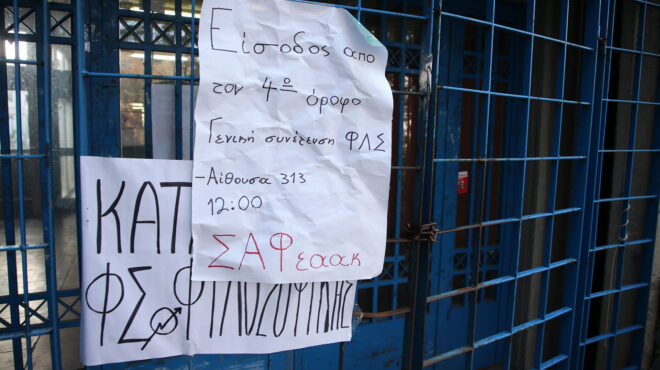 Είσοδος απο
τον 4º όροφο
Γενική συνέλευση ΦΛΣ
-Αίθουσα 313
12:00
ΣΑΦεαακ
ΚΑΤ
ΦΣ ΦΙΛΟΣΟΦΙΚΗΣ